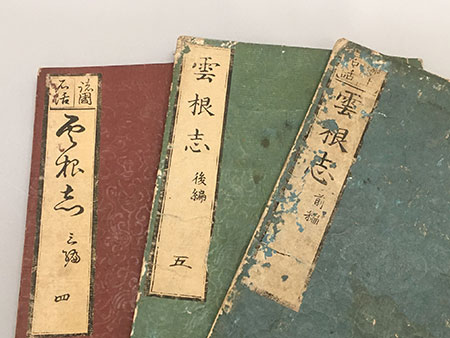 雲根志 前編
雲根志 後編 五
諸國
石話
雲根志 三編 四